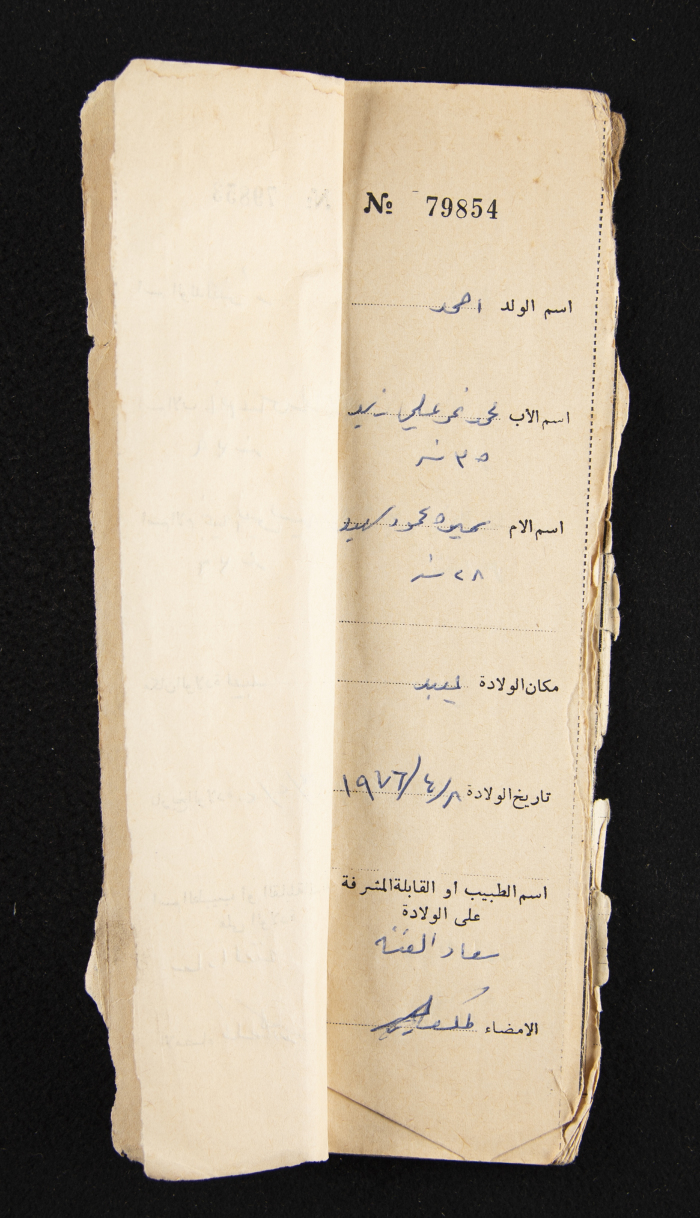 № 79854
اسم الولد احمد
اسم الاب محمد نمر علي زيد
٣٥ سنه
اسم الام سميره محمود سعيد
٢٨ سنه
مكان الولادة ليعبد
تاريخ الولادة ١٩٧٦/٤/٨
اسم الطبيب او القابلة المشرفة
على الولادة
سعاد
الامضاء